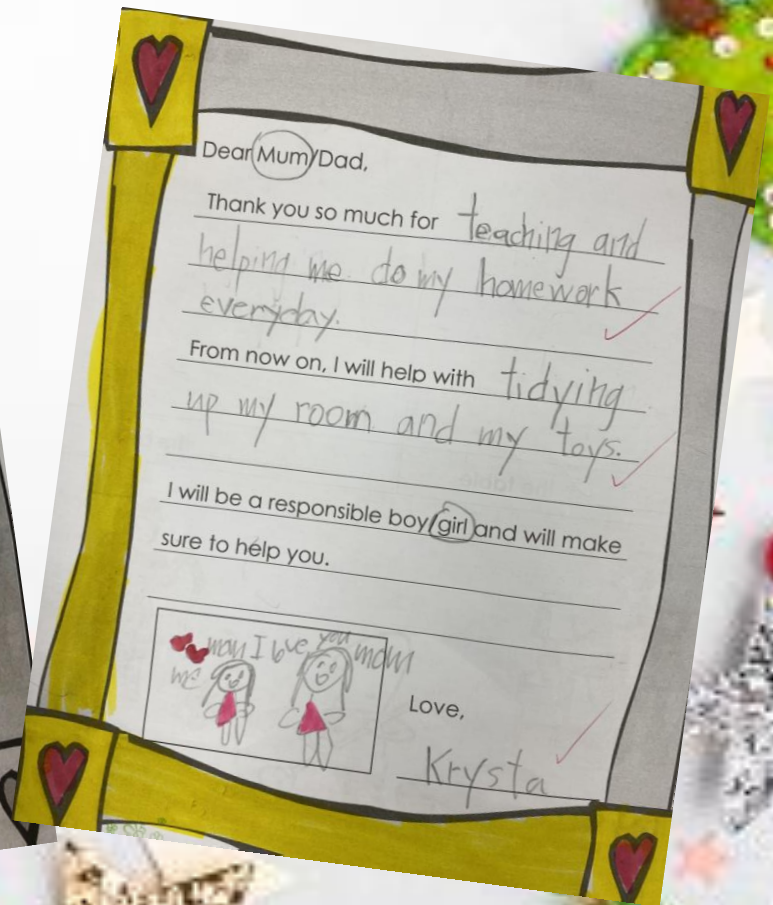 Dear Mum/Dad,
Thank you so much for teaching and
helping me do my homework
everyday.
From now on, I will help with tidying
up my room and my toys.
I will be a responsible boy/girl and will make
sure to help you.
I love you mom
me
Love,
Krysta